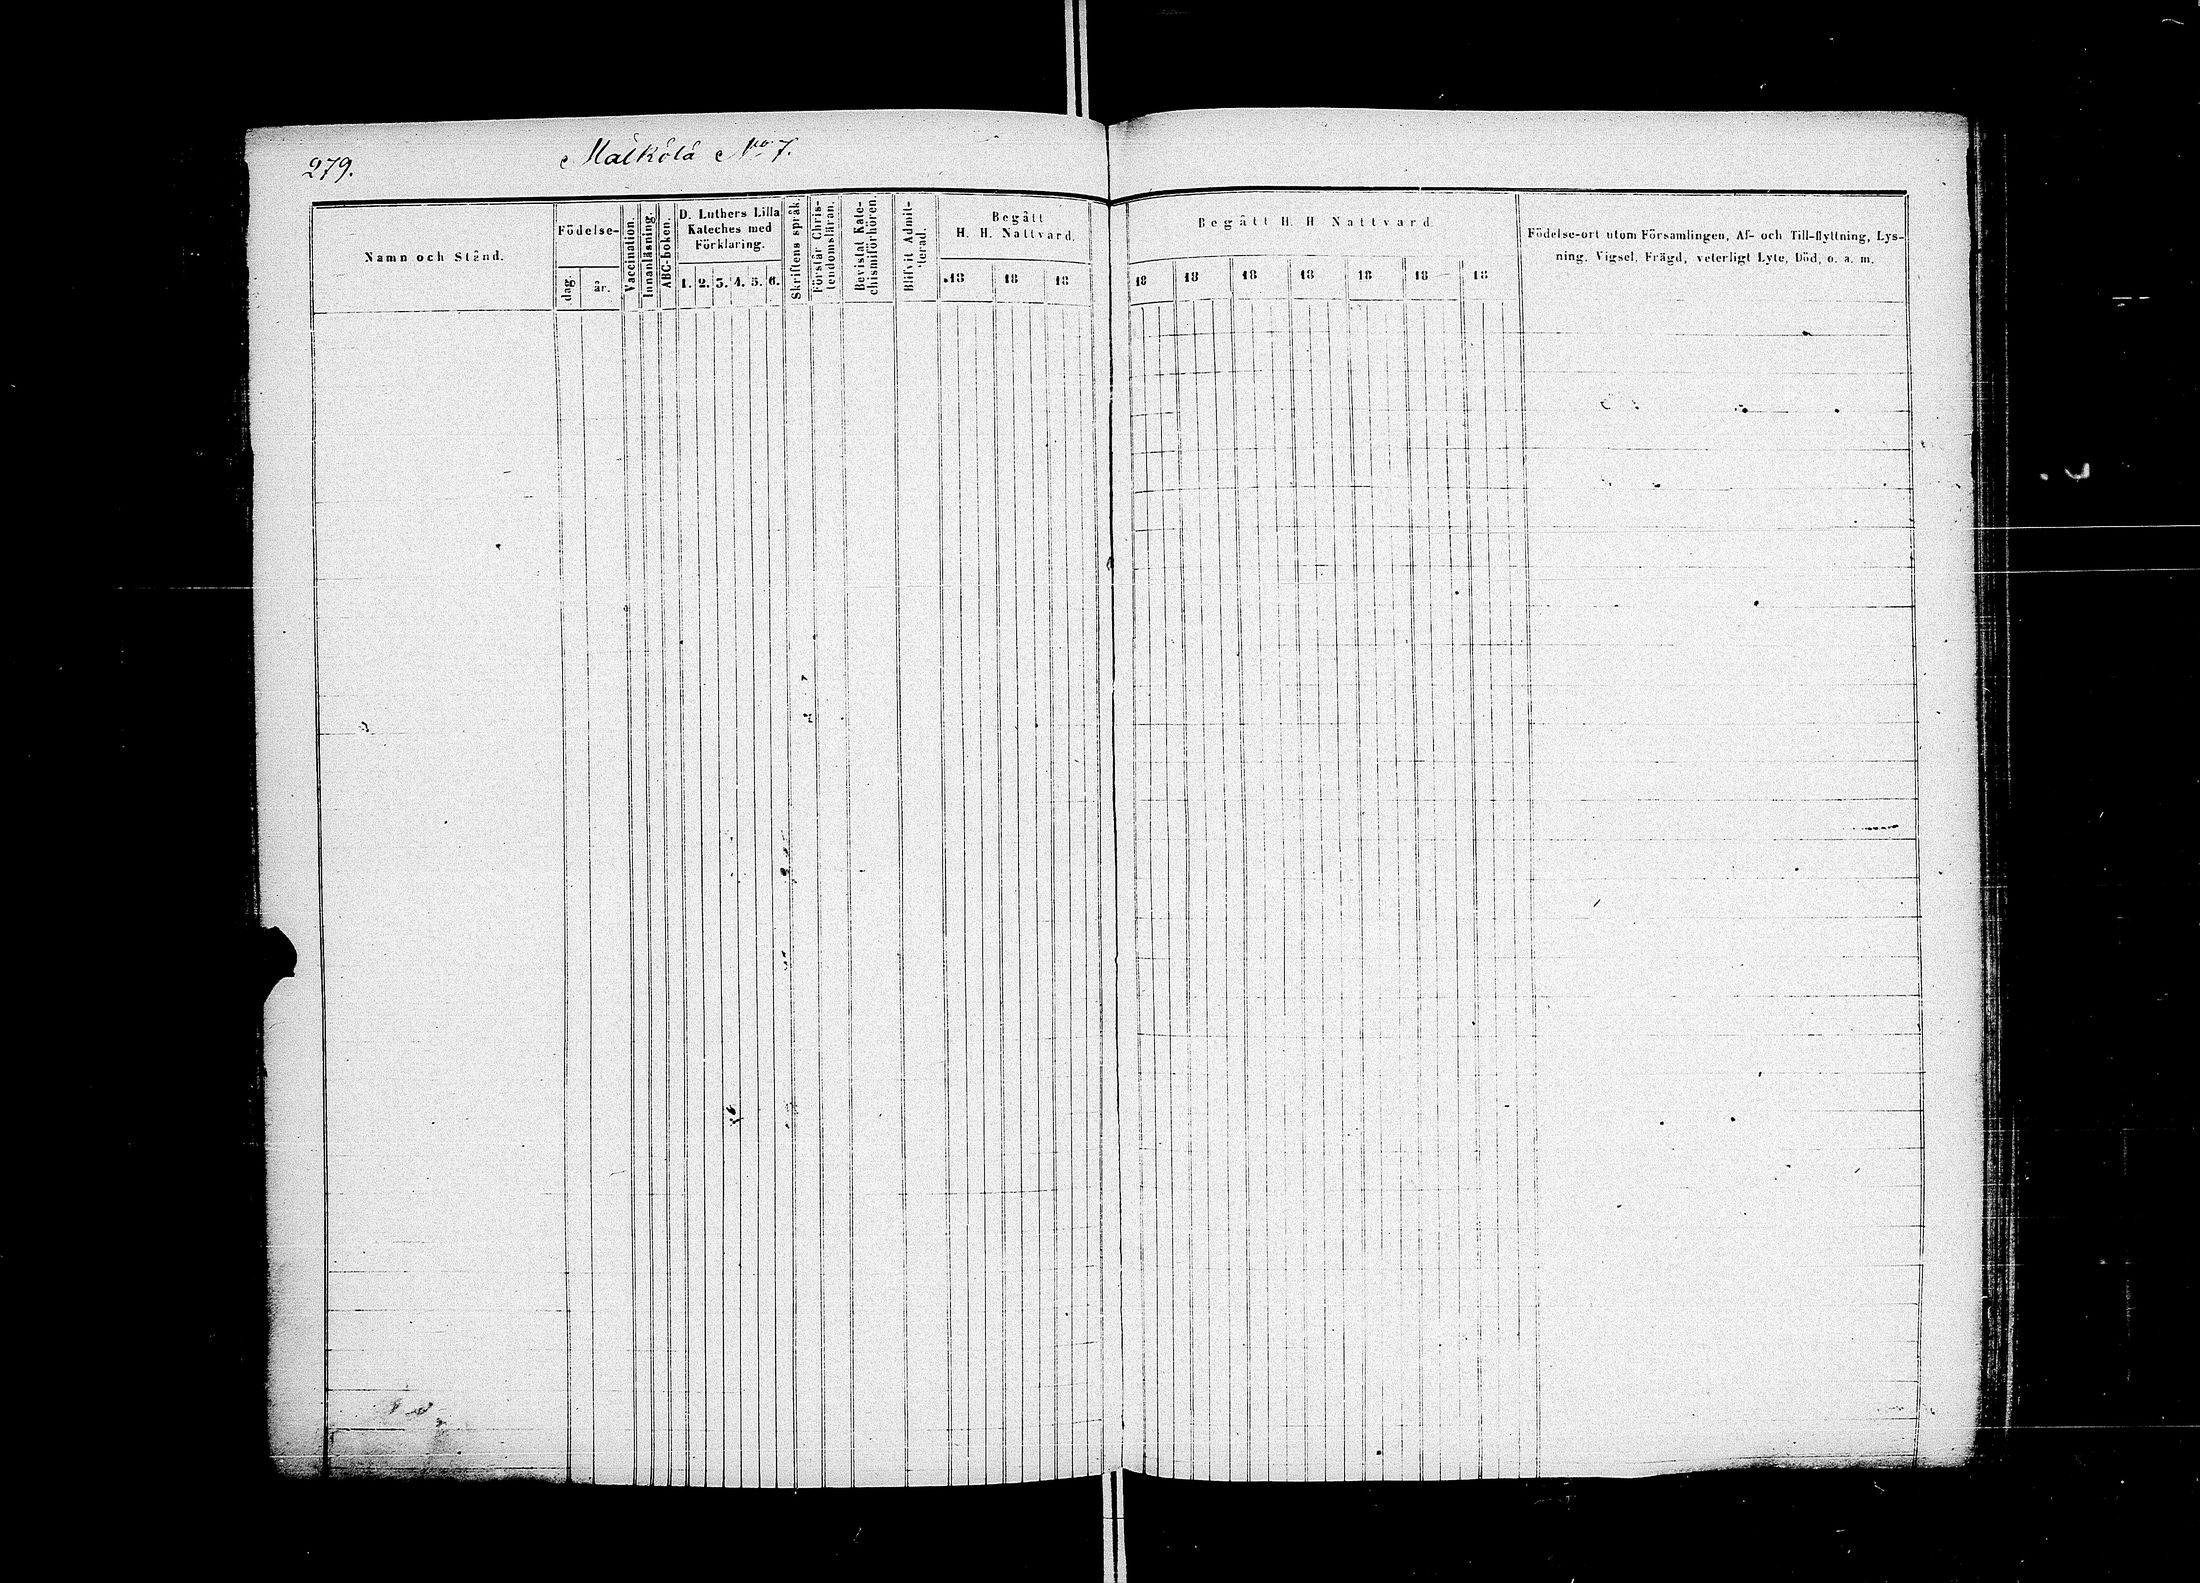 279.
Maikölä No 7.
Namn och Stånd.
Födelse-
dag.
år.
Vaccination.
Innanläsning.
ABC-boken.
D. Luthers Lilla
Kateches med
Förklaring.
1. 2. 3. 4. 5. 6.
Skriftens språk.
Förstår Chris-
tendomsläran.
Bevistat Kate-
chismiförhören.
Blifvit Admit-
terad.
Begått
H. H. Nattvard.
18 18 18
Begått H. H Nattvard
18 18 18 18 18 18 18
Födelse-ort utom Församlingen, Af- och Till-flyttning, Lys-
ning, Vigsel, Frägd, veterligt Lyte, Död, o. a. m.